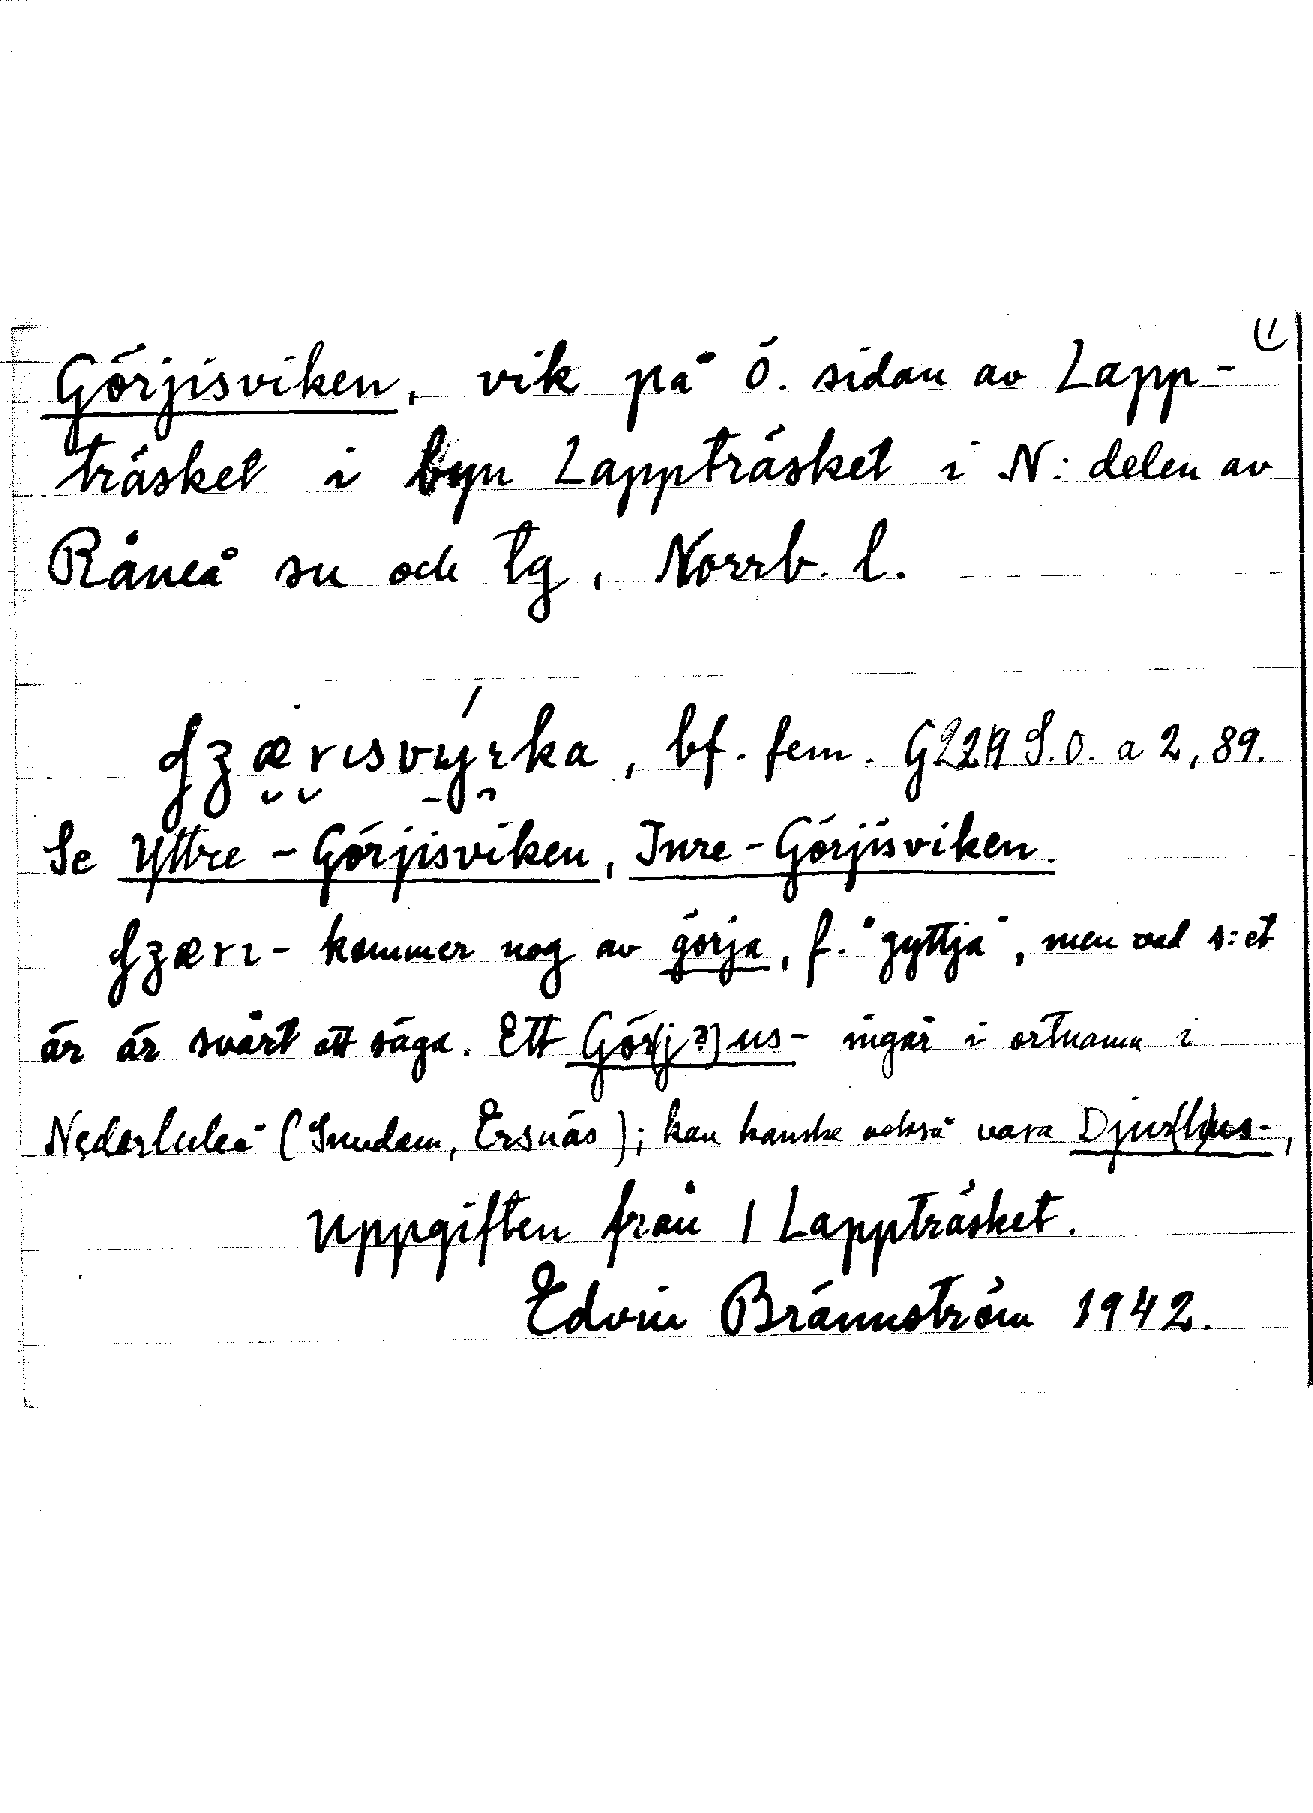 Görjisviken, vik på ö. sidan av Lapp-
träsket i byn Lappträsket i N: delen av
Råneå sn och tg, Norrb. l.
bf. fem. G22A S.O. a 2,89.
Se Yttre-Görjisviken, Inre-Görjisviken.
kommer nog av görja, f. "gyttja", men vad s:et
är är svårt att säga. Ett Gör(j?)us- ingår i ortnamn i
Nederluleå (Ersnäs); kan kanske också vara
Uppgiften från 1 Lappträsket.
Edvin Brännström 1942.